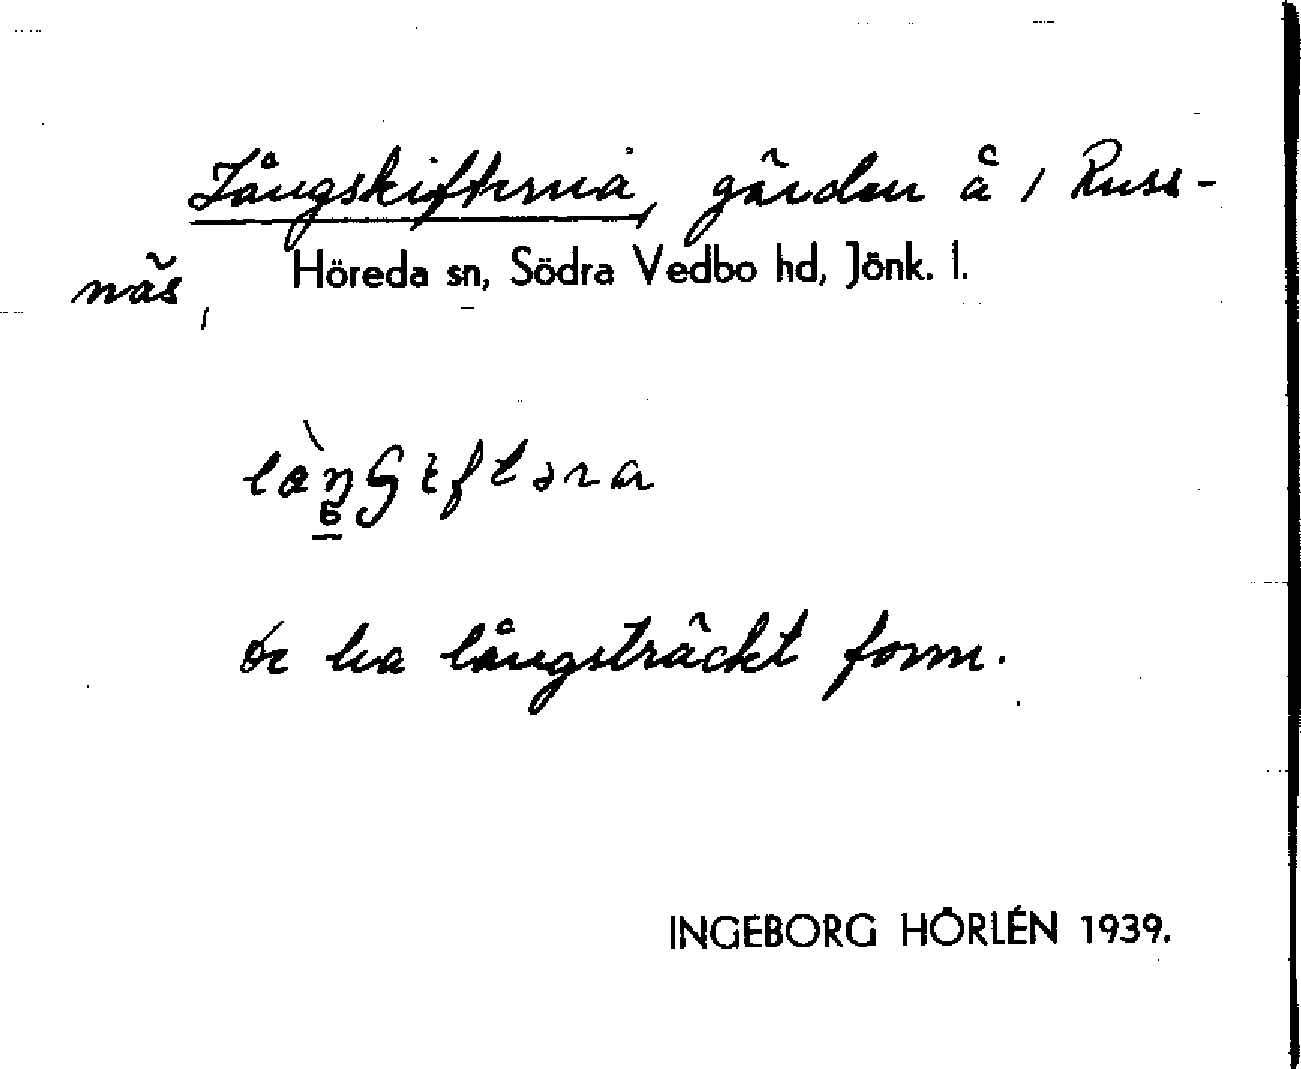 Långskifterna, gärden å 1 Russ-
näs, Höreda sn, Södra Vedbo hd, Jönk. l.
De ha långsträckt form.
INGEBORG HÖRLÉN 1939.